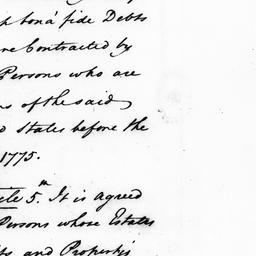 bona fide Debts
re Contracted by
Persons who are
ns of the said
d States before the
1775.
cle 5.th It is agreed
Persons whose Estates
ts and Property's